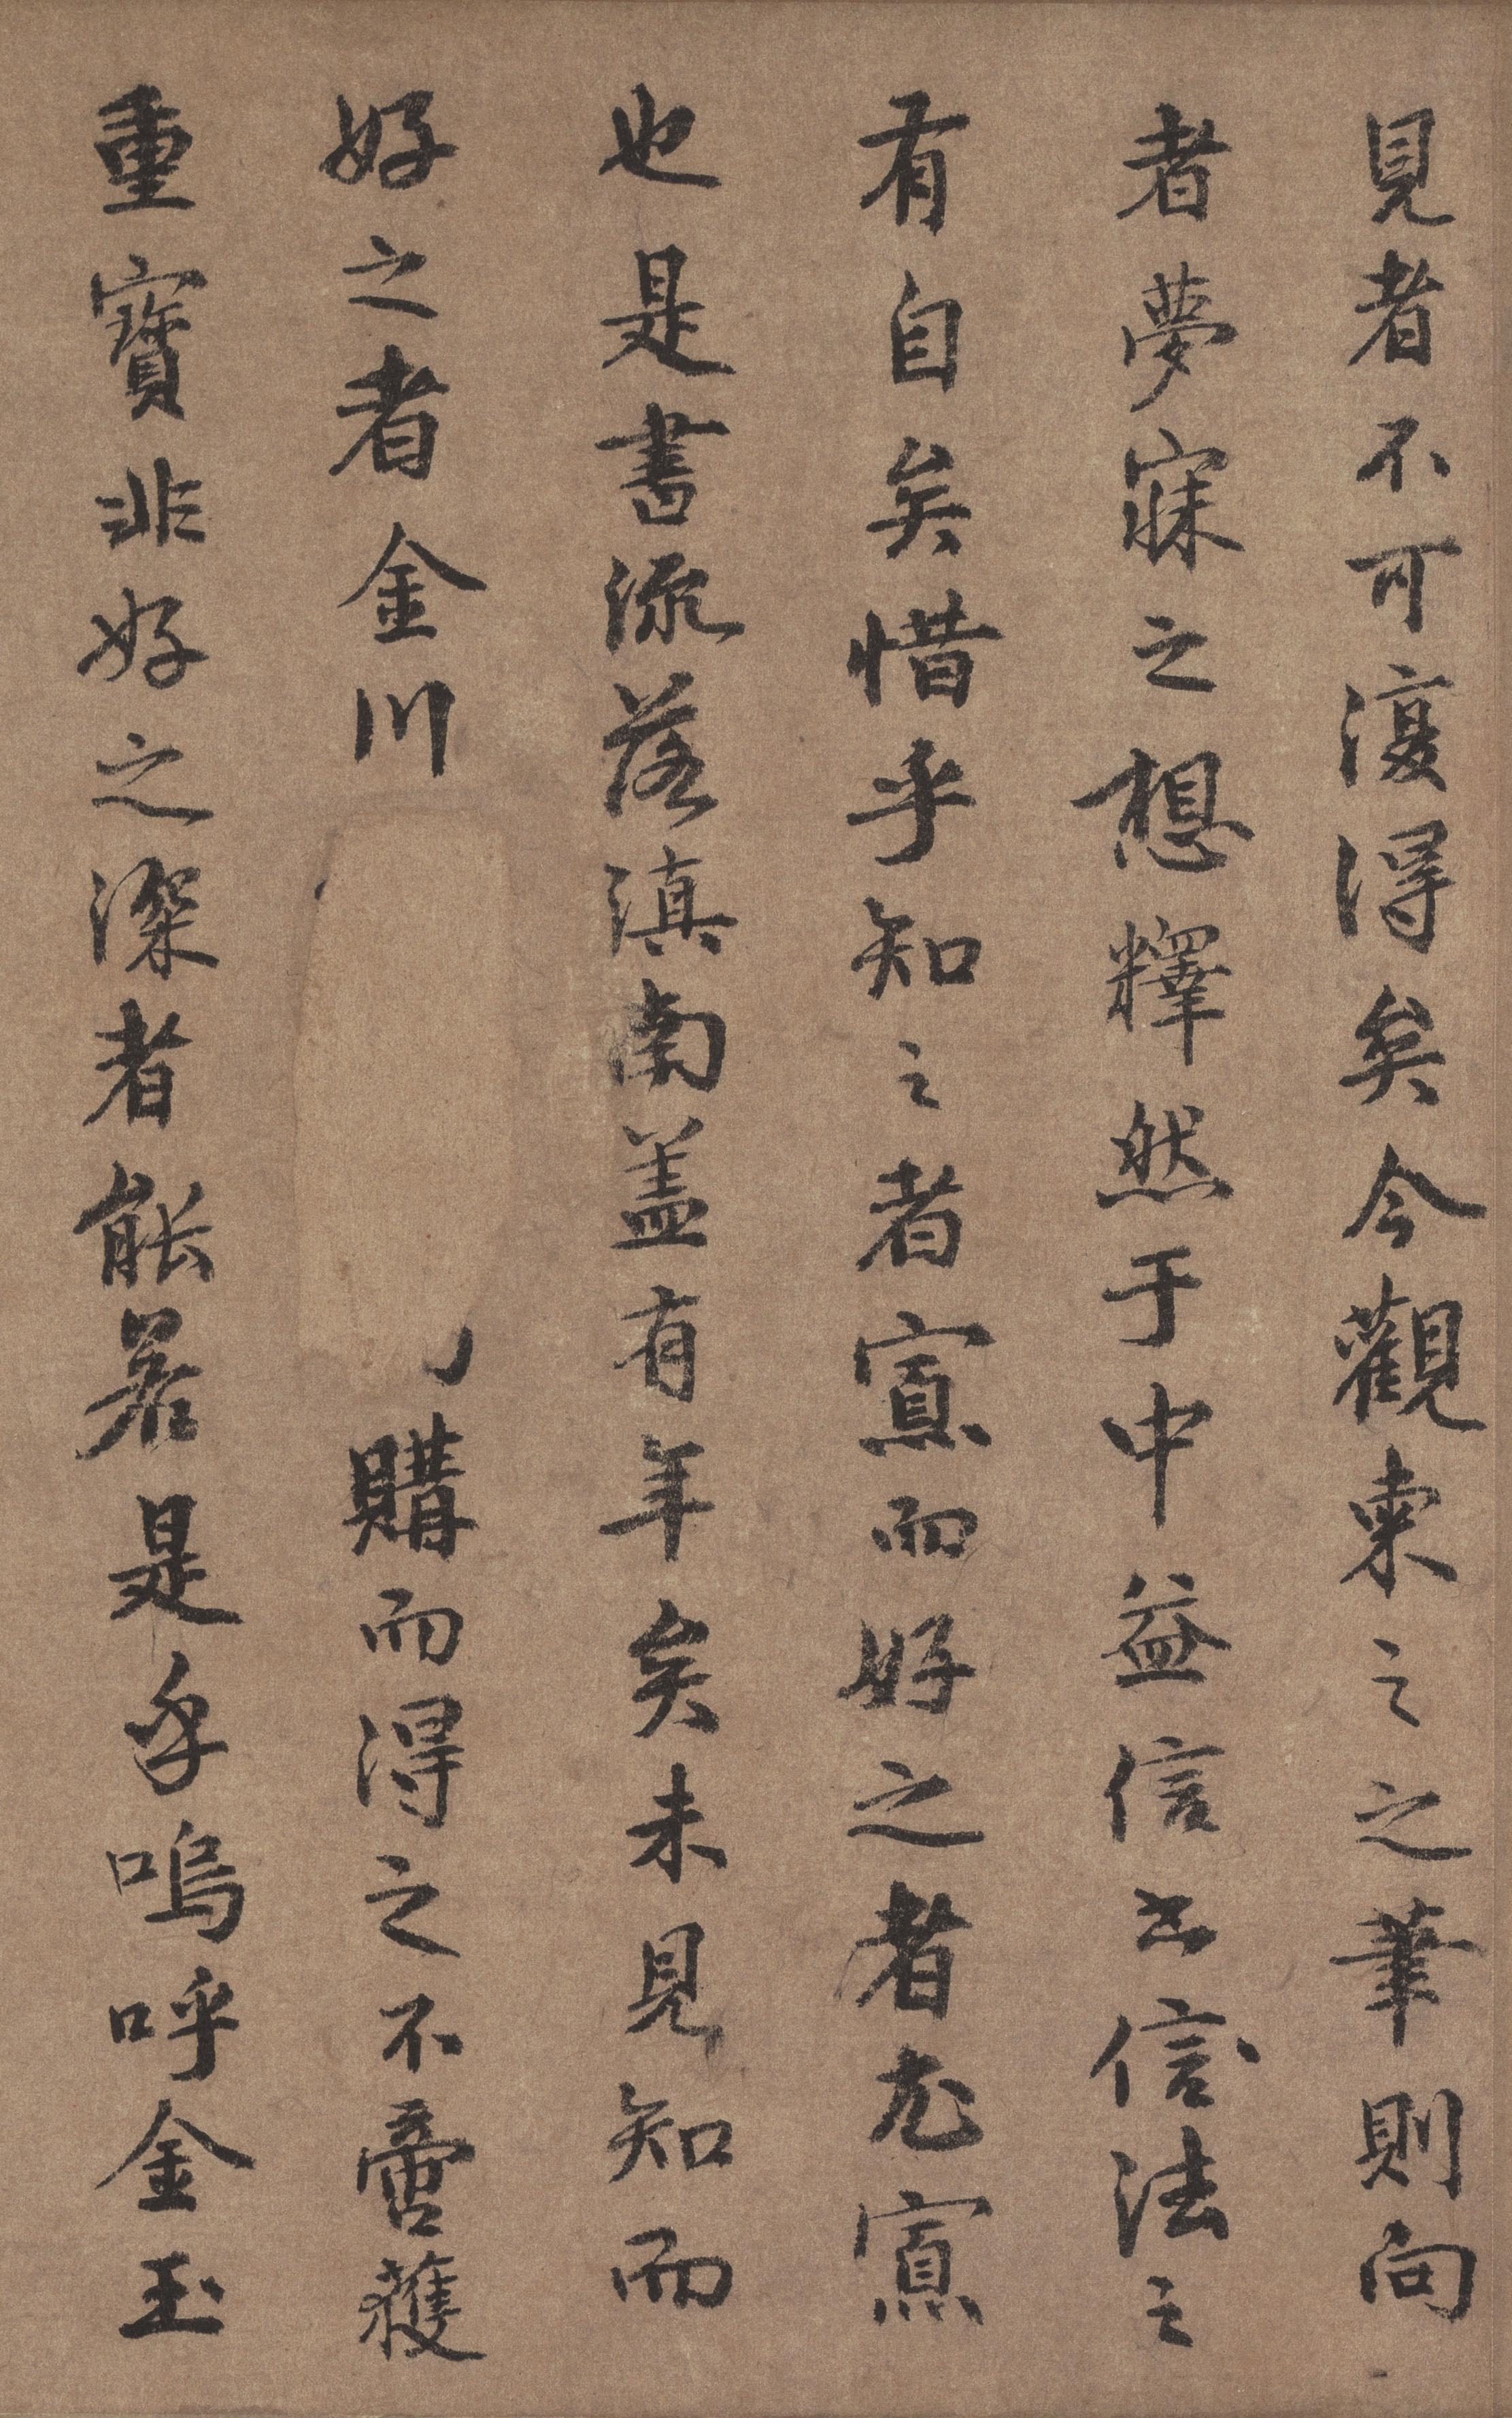 見者不可復得矣今觀柬之之筆則向
者夢寐之想釋然于中益信書信法之
有自矣惜乎知之者寡而好之者尤寡
也是書流落滇南蓋有年矣未見知而
好之者金川購而得之不啻獲
重寶非好之深者能若是乎嗚呼金玉